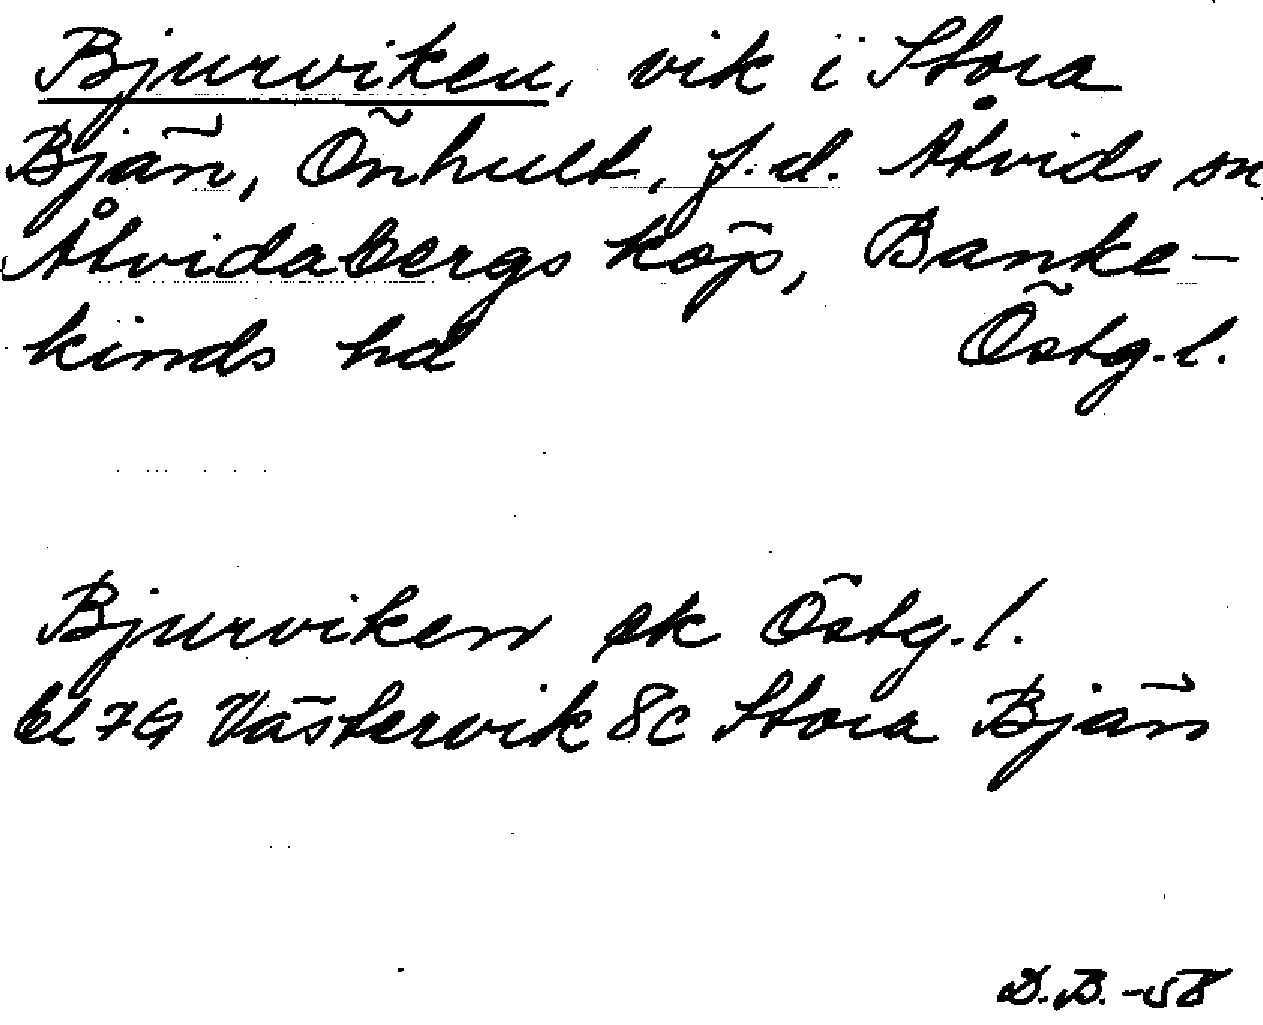 Bjurviken, vik i Stora
Bjän, Önhult, f.d. Åtvids sn
Åtvidabergs köp, Banke-
kinds hd Östg.l.
Bjurviken ek Östg.l.
bl 7G Västervik 8c Stora Bjän
D.B. -58